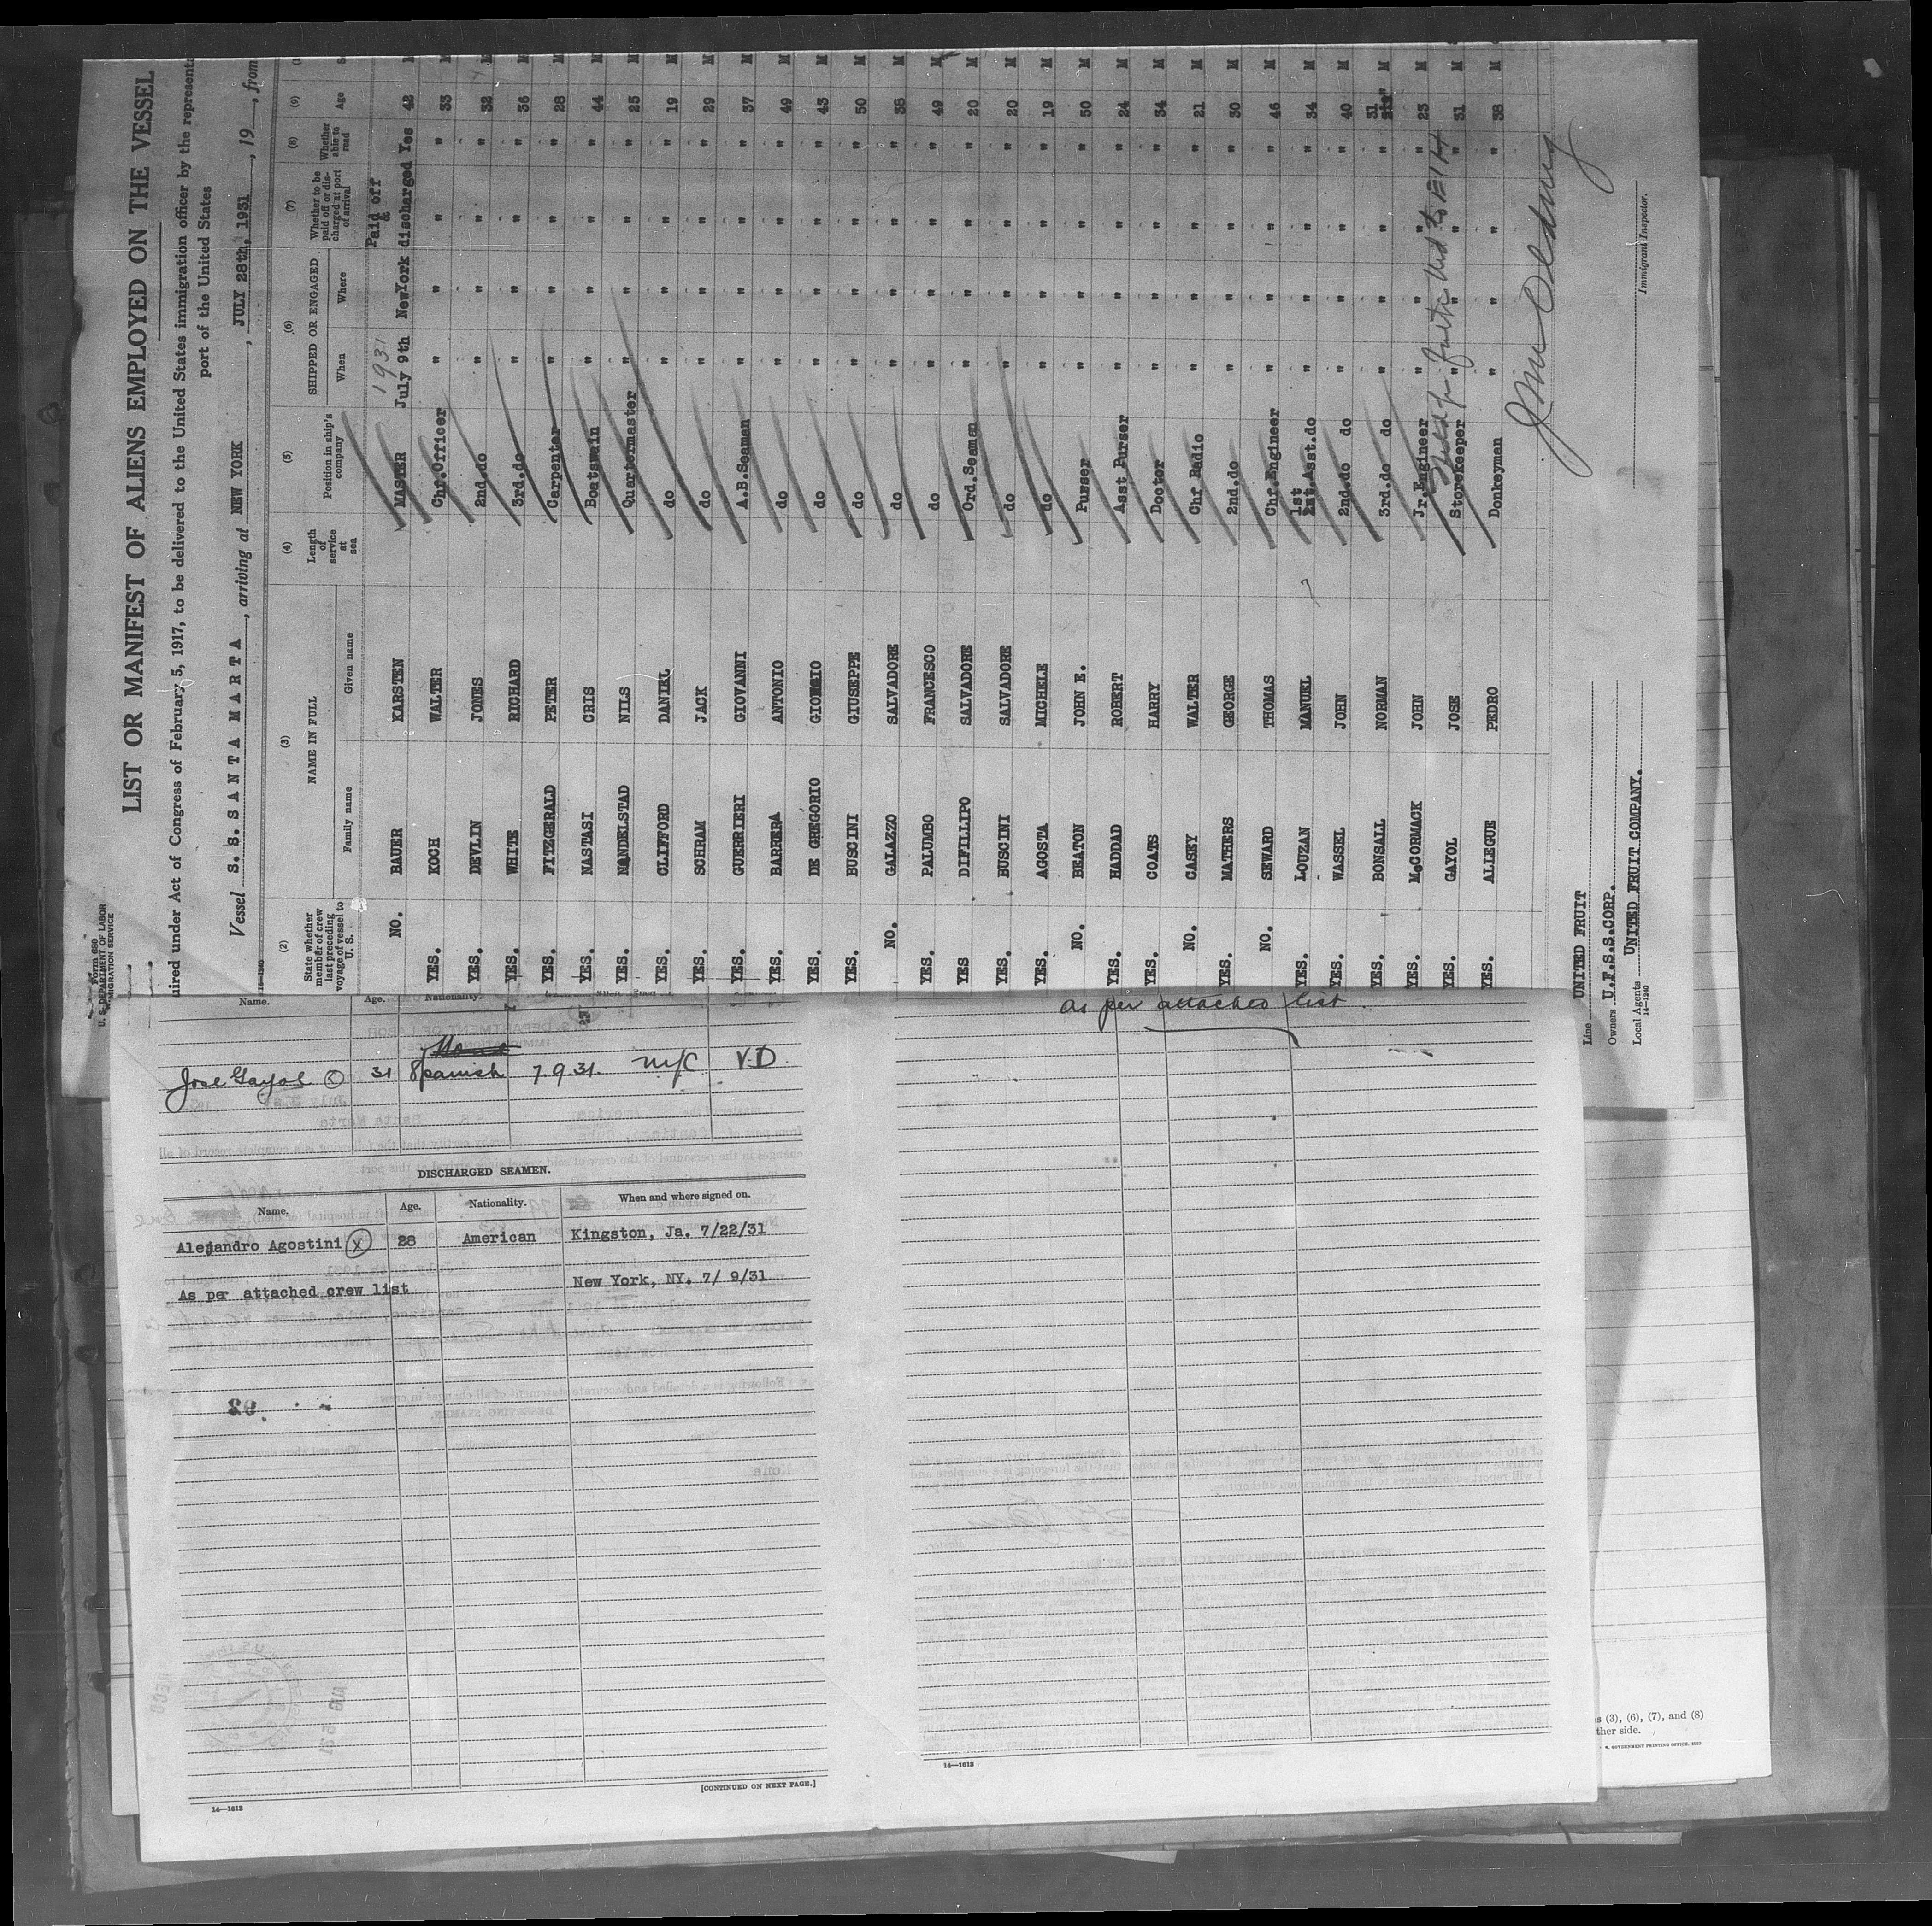 Form 680
U. S. DEPARTMENT OF LABOR
IMMIGRATION SERVICE
LIST OR MANIFEST OF ALIENS EMPLOYED ON THE VESSEL
uired under Act of Congress of February 5, 1917, to be delivered to the United States immigration officer by the representa
port of the United States
Vessel S. S. S A N T A M A R T A, arriving at NEW YORK, JULY 28th, 1931, 19, from
(2) (3) (4) (5) (6) (7) (8) (9)
State whether member of crew last preceding voyage of vessel to U. S.
NAME IN FULL
Family name Given name
Length of service at sea
Position in ship's company
SHIPPED OR ENGAGED
When Where
Whether to be paid off or discharged at port of arrival
Whether able to read
Age
1931 Paid off &
NO. BAUER KARSTEN MASTER July 9th NewYork discharged Yes 42 M
YES. KOCH WALTER Chf.Officer " " " " 33 M
YES. DEVLIN JONES 2nd.do " " " " 32 M
YES. WHITE RICHARD 3rd.do " " " " 36 M
YES. FITZGERALD PETER Carpenter " " " " 28 M
YES. NASTASI CRIS Boatswain " " " " 44 M
YES. NANDELSTAD NILS Quartermaster " " " " 25 M
YES. CLIFFORD DANIEL do " " " " 19 M
YES. SCHRAM JACK do " " " " 29 M
YES. GUERRIERI GIOVANNI A.B.Seaman " " " " 37 M
YES. BARRERA ANTONIO do " " " " 49 M
YES. DE GREGORIO GIORGIO do " " " " 43 M
YES. BUSCINI GIUSEPPE do " " " " 50 M
NO. GALAZZO SALVADORE do " " " " 38 M
YES. PALUMBO FRANCESCO do " " " " 49 M
YES DIFILLIPO SALVADORE Ord.Seaman " " " " 20 M
YES. BUSCINI SALVADORE do " " " " 20 M
YES. AGOSTA MICHELE do " " " " 19 M
NO. BEATON JOHN E. Purser " " " " 50 M
YES. HADDAD ROBERT Asst Purser " " " " 24 M
YES. COATS HARRY Doctor " " " " 34 M
NO. CASEY WALTER Chf Radio " " " " 21 M
YES. MATHERS GEORGE 2nd.do " " " " 30 M
NO. SEWARD THOMAS Chf.Engineer " " " " 46 M
YES. LOUZAN MANUEL 1st Asst.do " " " " 34 M
YES. WASSEL JOHN 2nd.do do " " " " 40 M
YES. BONSALL NORMAN 3rd.do do " " " " 31 M
YES. McCORMACK JOHN Jr.Engineer " " " " 23 M
YES. GAYOL JOSE Storekeeper " " " " 31 M
YES. ALLEGUE PEDRO Donkeyman " " " " 38 M
Line UNITED FRUIT
Owners U.F.S.S.CORP.
Local Agents UNITED FRUIT COMPANY.
14—1240
Immigrant Inspector.
Name. Age. Nationality.
Jose Gayol 31 Spanish 7.9.31. M/C V.D.
DISCHARGED SEAMEN.
Name. Age. Nationality. When and where signed on.
Alejandro Agostini (X) 28 American Kingston, Ja. 7/22/31
As per attached crew list New York, NY. 7/ 9/31
[CONTINUED ON NEXT PAGE.]
14—1613
as per attached list
14—1613
s (3), (6), (7), and (8)
ther side.
GOVERNMENT PRINTING OFFICE